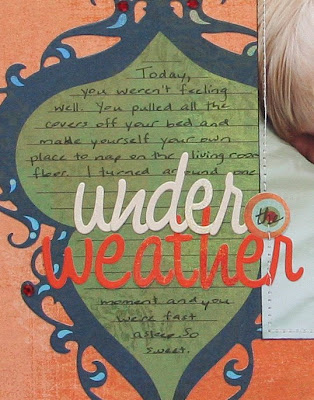 Today,
you weren't feeling
well. You pulled all the
covers off your bed and
made yourself your own
place to nap on the living room
floor. I turned around one
under the
weather
moment and you
were fast
asleep. So
sweet.